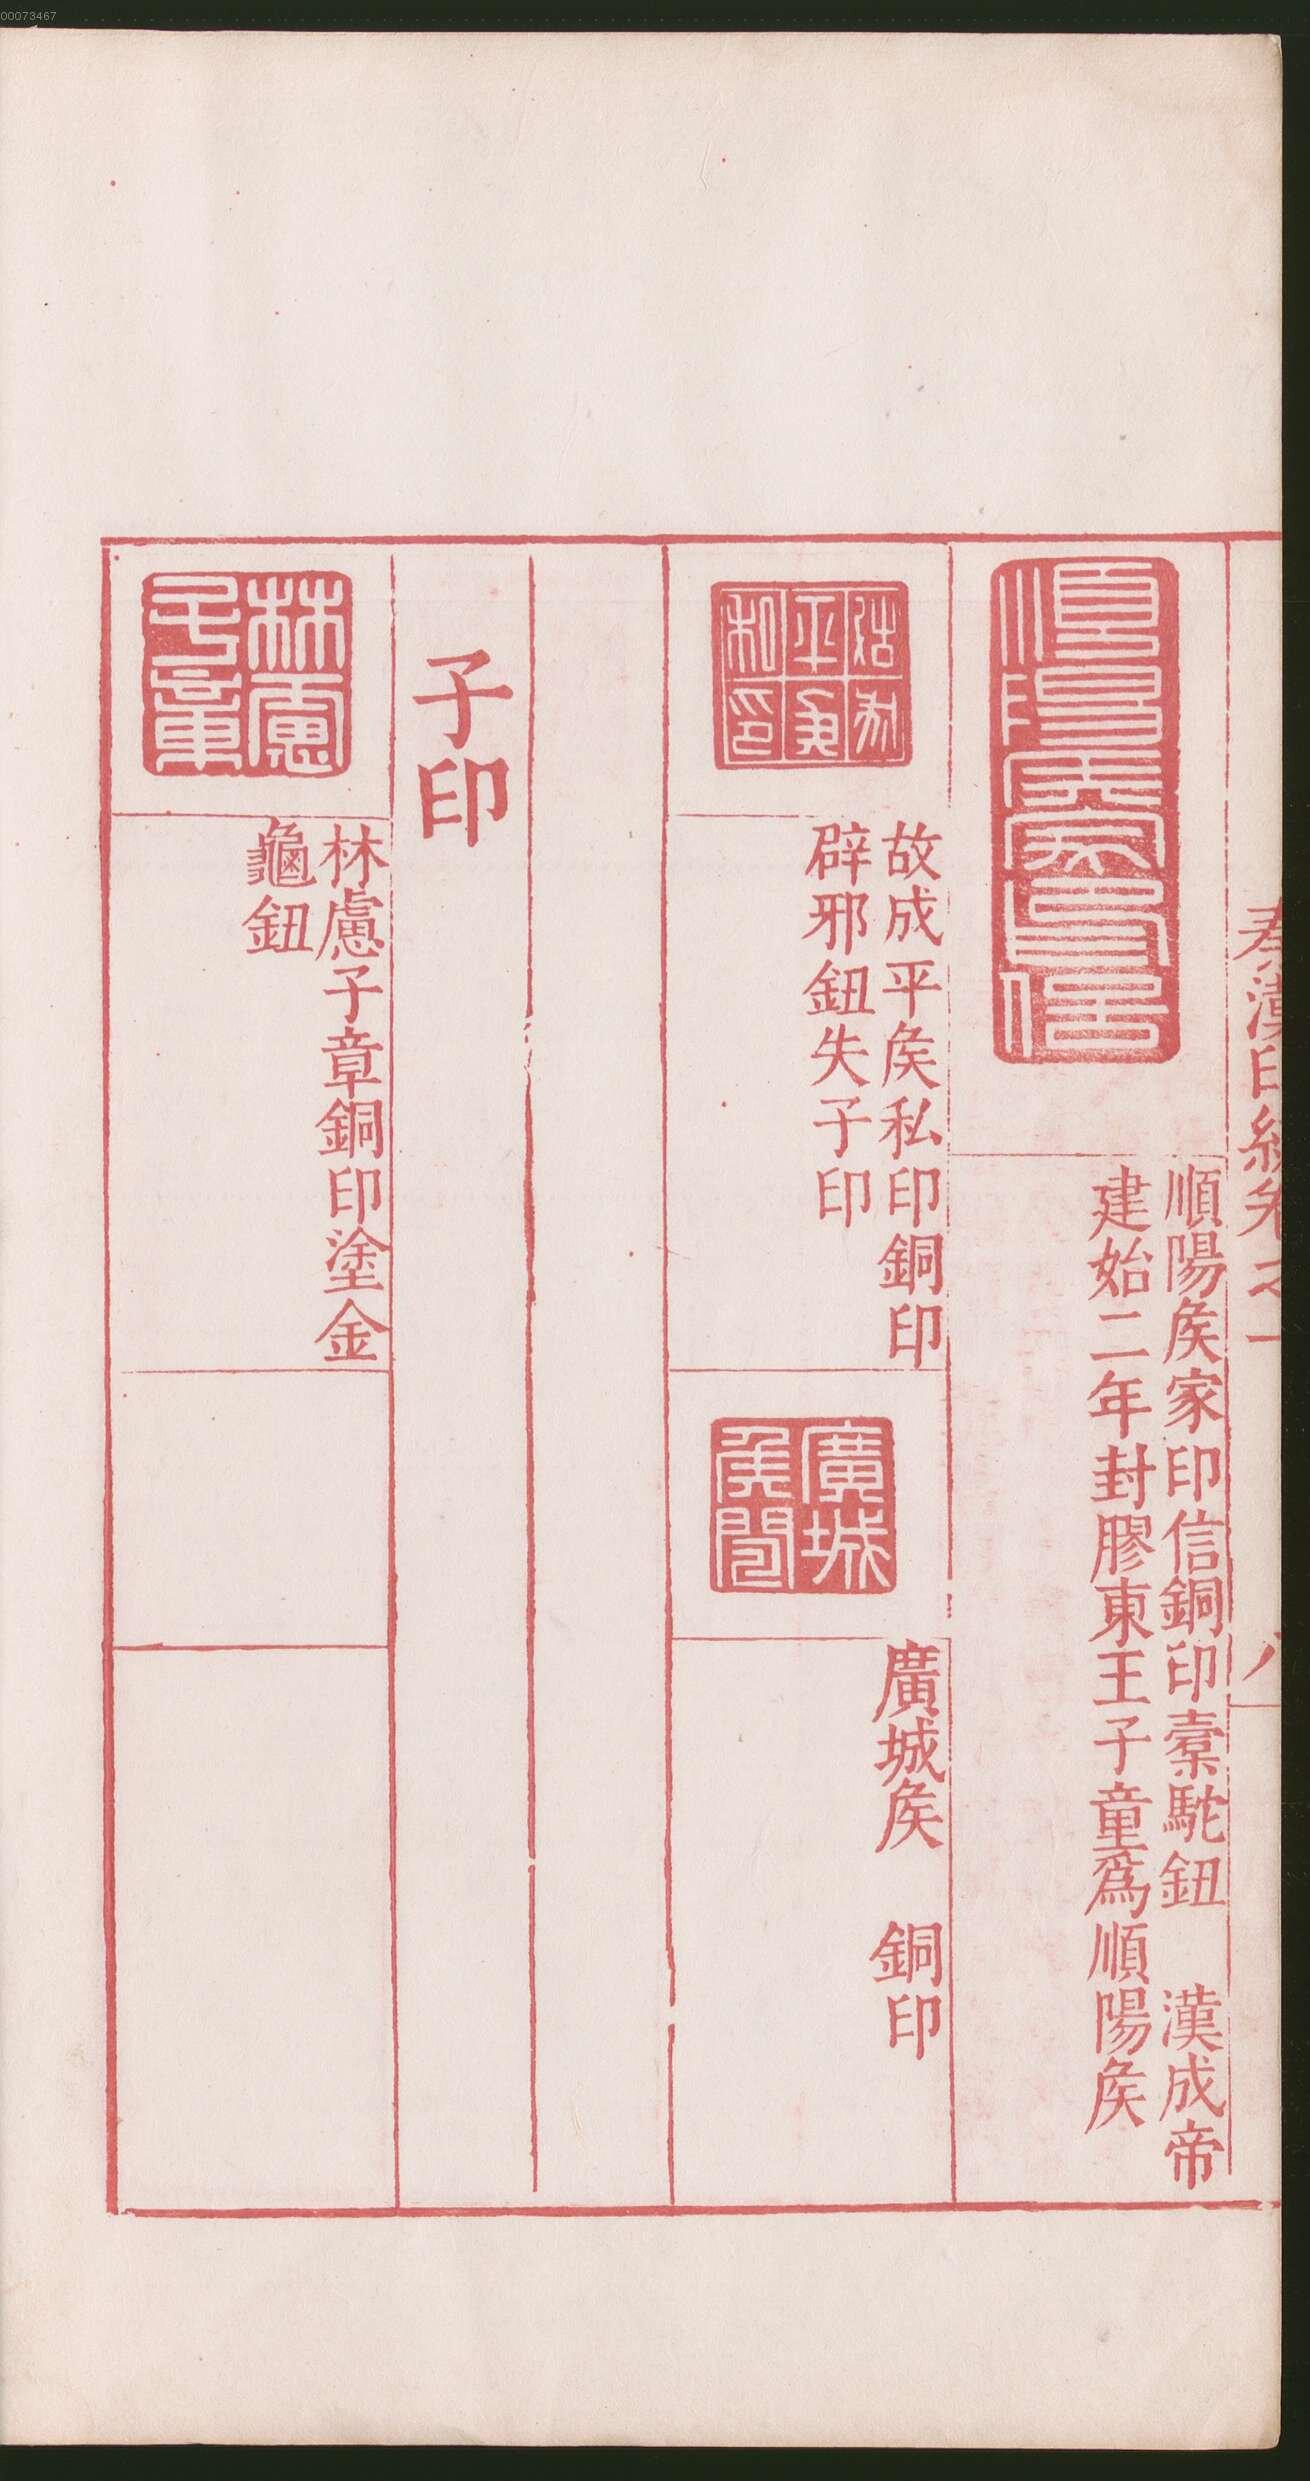 00073467
秦漢印統卷之一
八
順陽矦家印信
順陽矦家印信銅印槖駝鈕 漢成帝
建始二年封膠東王子童爲順陽矦
故成平矦私印
故成平矦私印銅印
辟邪鈕失子印
廣城矦
廣城矦 銅印
子印
林慮子章
林慮子章銅印塗金
龜鈕